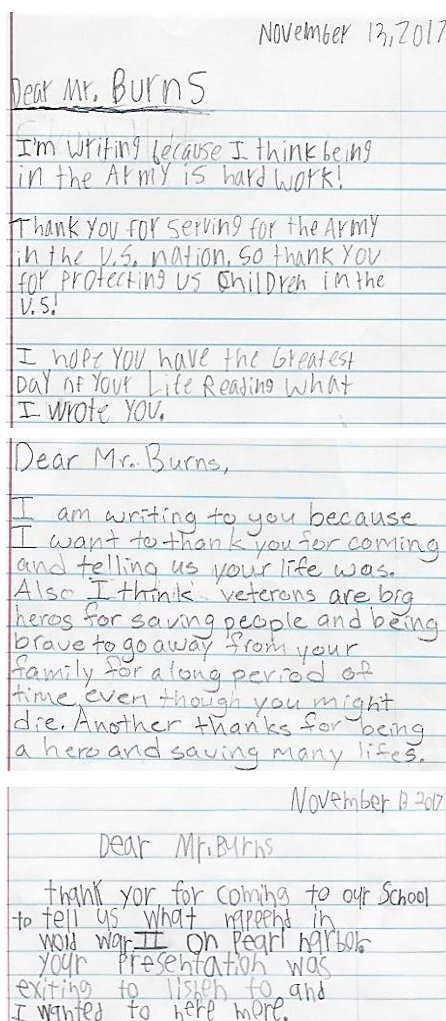 November 13, 2017
Dear Mr. Burns
I'm writing because I think being
in the Army is hard work!
Thank you for serving for the Army
in the U.S. nation. So thank you
for protecting us Children in the
U.S!
I hope you have the Greatest
Day of Your Life Reading what
I wrote you.
Dear Mr. Burns,
I am writing to you because
I want to thank you for coming
and telling us your life was.
Also I think veterons are big
heros for saving people and being
brave to go away from your
family for a long period of
time, even though you might
die. Another thanks for being
a hero and saving many lifes.
November 13 2017
Dear Mr. Burns
thank yor for coming to our School
to tell us what happend in
wold war II on Pearl harbor
your presentation was
exiting to listen to and
I wanted to here more.